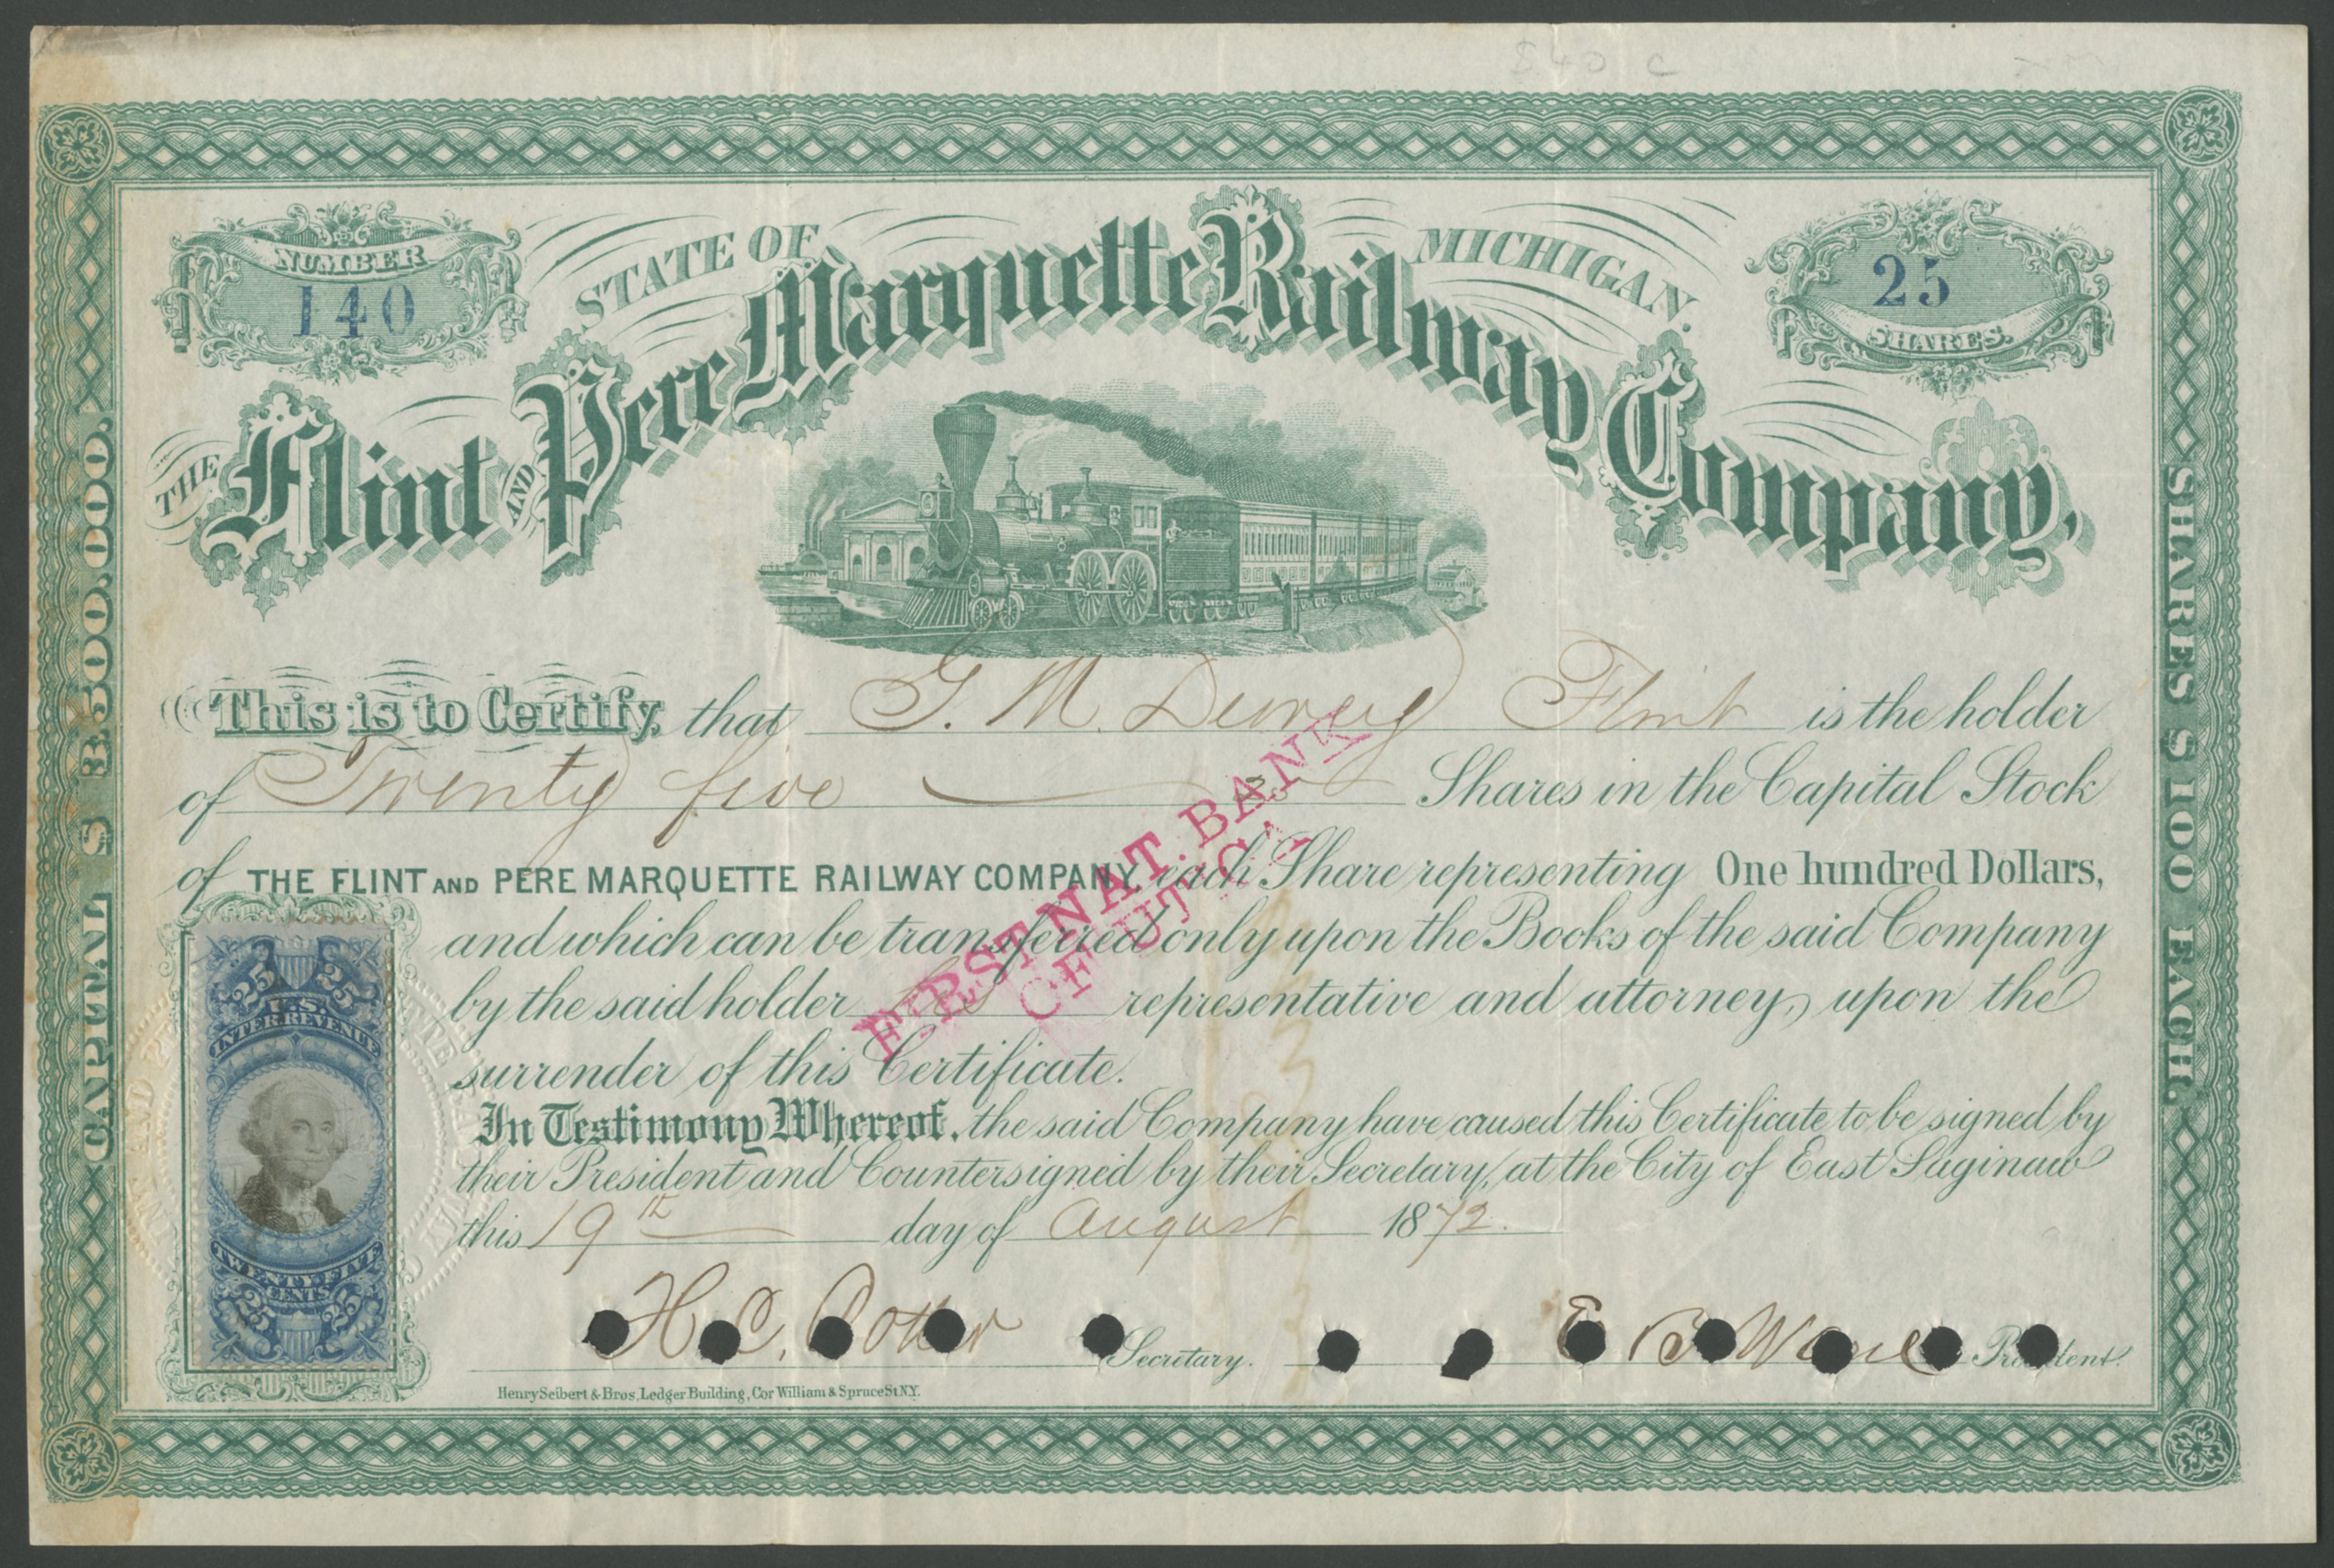 $40 c
NUMBER
140
STATE OF MICHIGAN.
25
SHARES.
THE Flint AND Pere Marquette Railway Company,
CAPITAL $ 3.500.000.
SHARES $100 EACH.
This is to Certify, that G. M. Dewey Flint is the holder
of Twenty five Shares in the Capital Stock
of THE FLINT AND PERE MARQUETTE RAILWAY COMPANY, each Share representing One hundred Dollars,
and which can be transferred only upon the Books of the said Company
by the said holder his representative and attorney, upon the
surrender of this Certificate.
FIRST NAT. BANK
OF UTICA
In Testimony Whereof, the said Company have caused this Certificate to be signed by
their President and Countersigned by their Secretary, at the City of East Saginaw
this 19th day of August 1872.
25 25
U.S.
INTER. REVENUE
TWENTY FIVE
CENTS
25 25
H. C. Potter Secretary. E. B. Ward President.
Henry Seibert & Bros. Ledger Building, Cor William & Spruce St. N.Y.